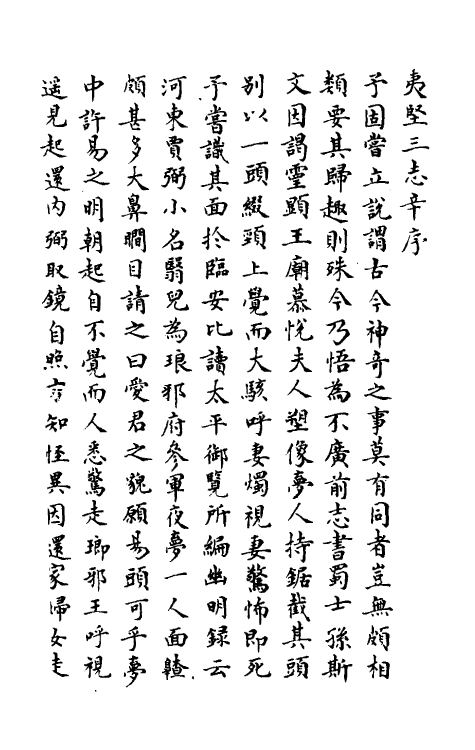 夷堅三志辛序
予固嘗立說謂古今神奇之事莫有同者豈無頗相
類要其歸趣則殊今乃悟為不廣前志書蜀士孫斯
文因謁靈顯王廟慕悅夫人塑像夢人持鋸截其頭
別以一頭綴頸上覺而大駭呼妻燭視妻驚怖即死
予嘗識其面於臨安比讀太平御覽所編幽明録云
河東賈弼小名翳兒為琅邪府參軍夜夢一人面䶥
頗甚多大鼻瞷目請之曰愛君之貌願易頭可乎夢
中許易之明朝起自不覺而人悉驚走琅邪王呼視
遥見起還内弼取鏡自照方知怪異因還家婦女走